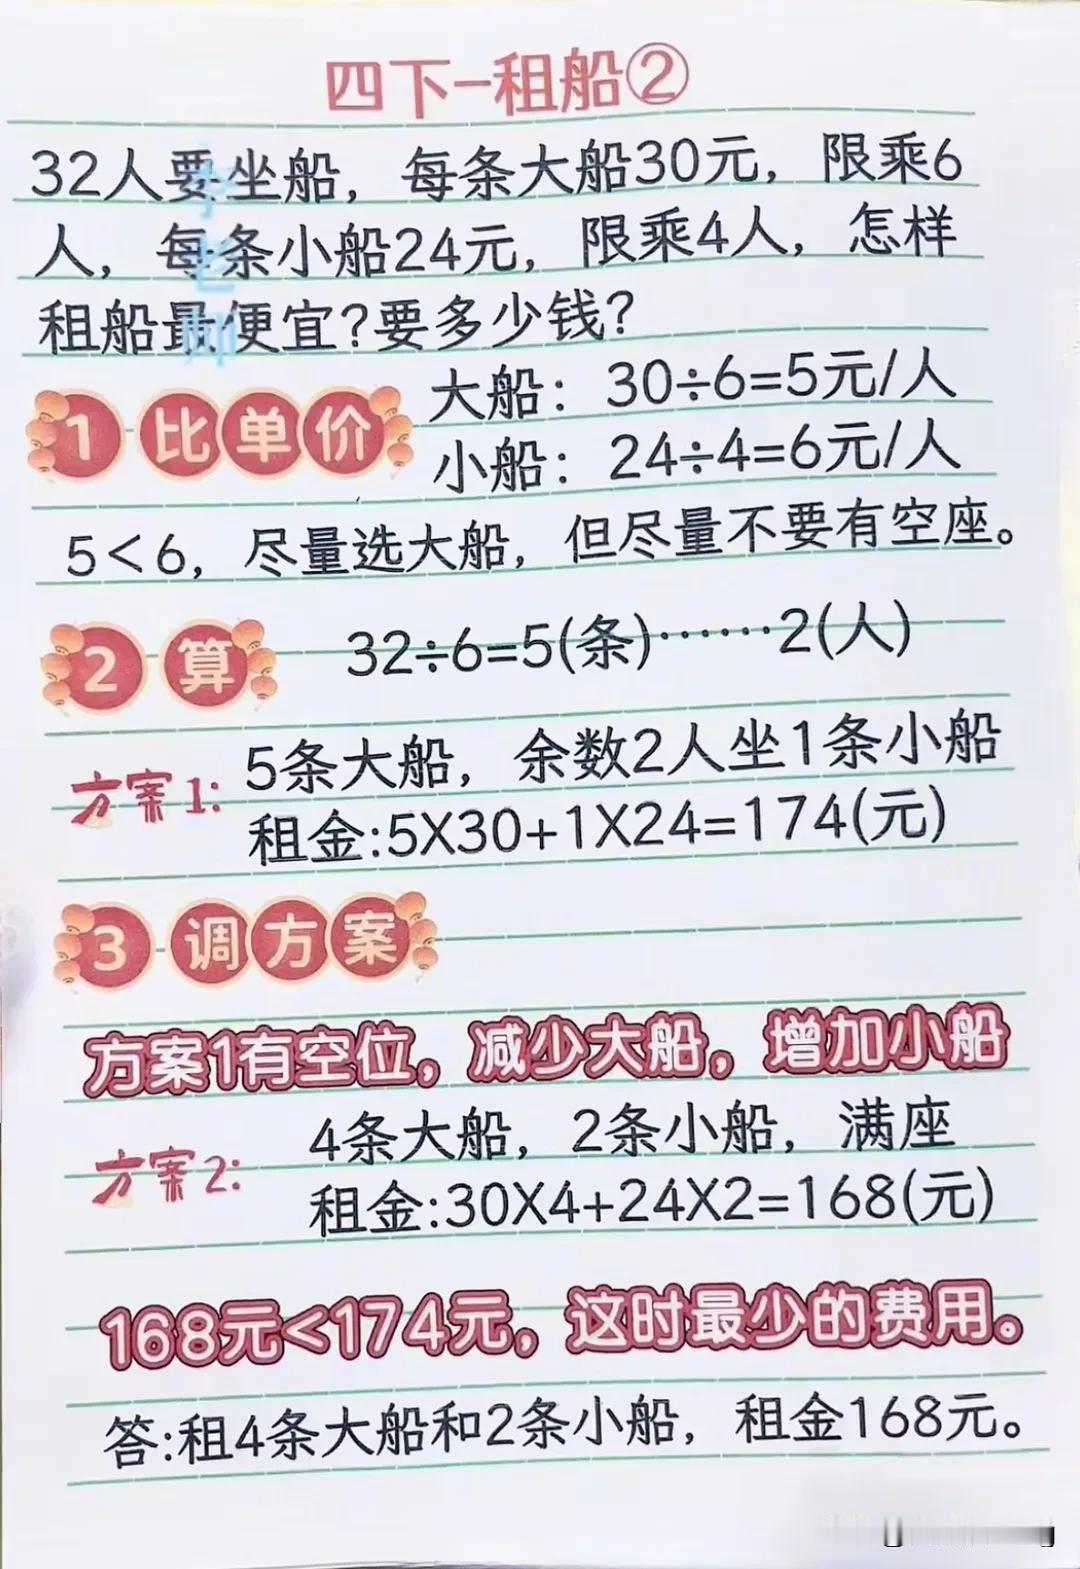 四下-租船②
32人要坐船，每条大船30元，限乘6
人，每条小船24元，限乘4人，怎样
租船最便宜?要多少钱?
1 比单价
大船：30÷6=5元/人
小船：24÷4=6元/人
5＜6，尽量选大船，但尽量不要有空座。
2 算
32÷6=5(条)……2(人)
方案1:
5条大船，余数2人坐1条小船
租金:5X30+1X24=174(元)
3 调方案
方案1有空位，减少大船，增加小船
方案2:
4条大船，2条小船，满座
租金:30X4+24X2=168(元)
168元<174元，这时最少的费用。
答:租4条大船和2条小船，租金168元。